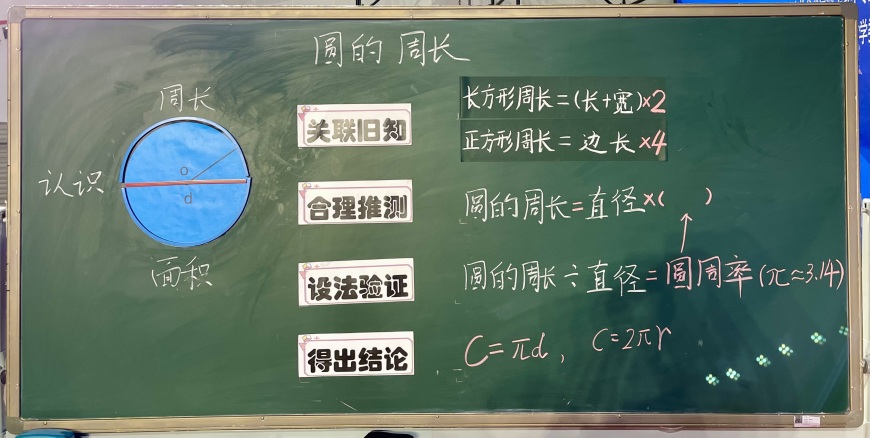 圆的周长
周长
认识
o
d
面积
关联旧知
长方形周长=(长+宽)×2
正方形周长=边长×4
合理推测
圆的周长=直径×( )
设法验证
圆的周长÷直径=圆周率(π≈3.14)
得出结论
C=πd, C=2πr